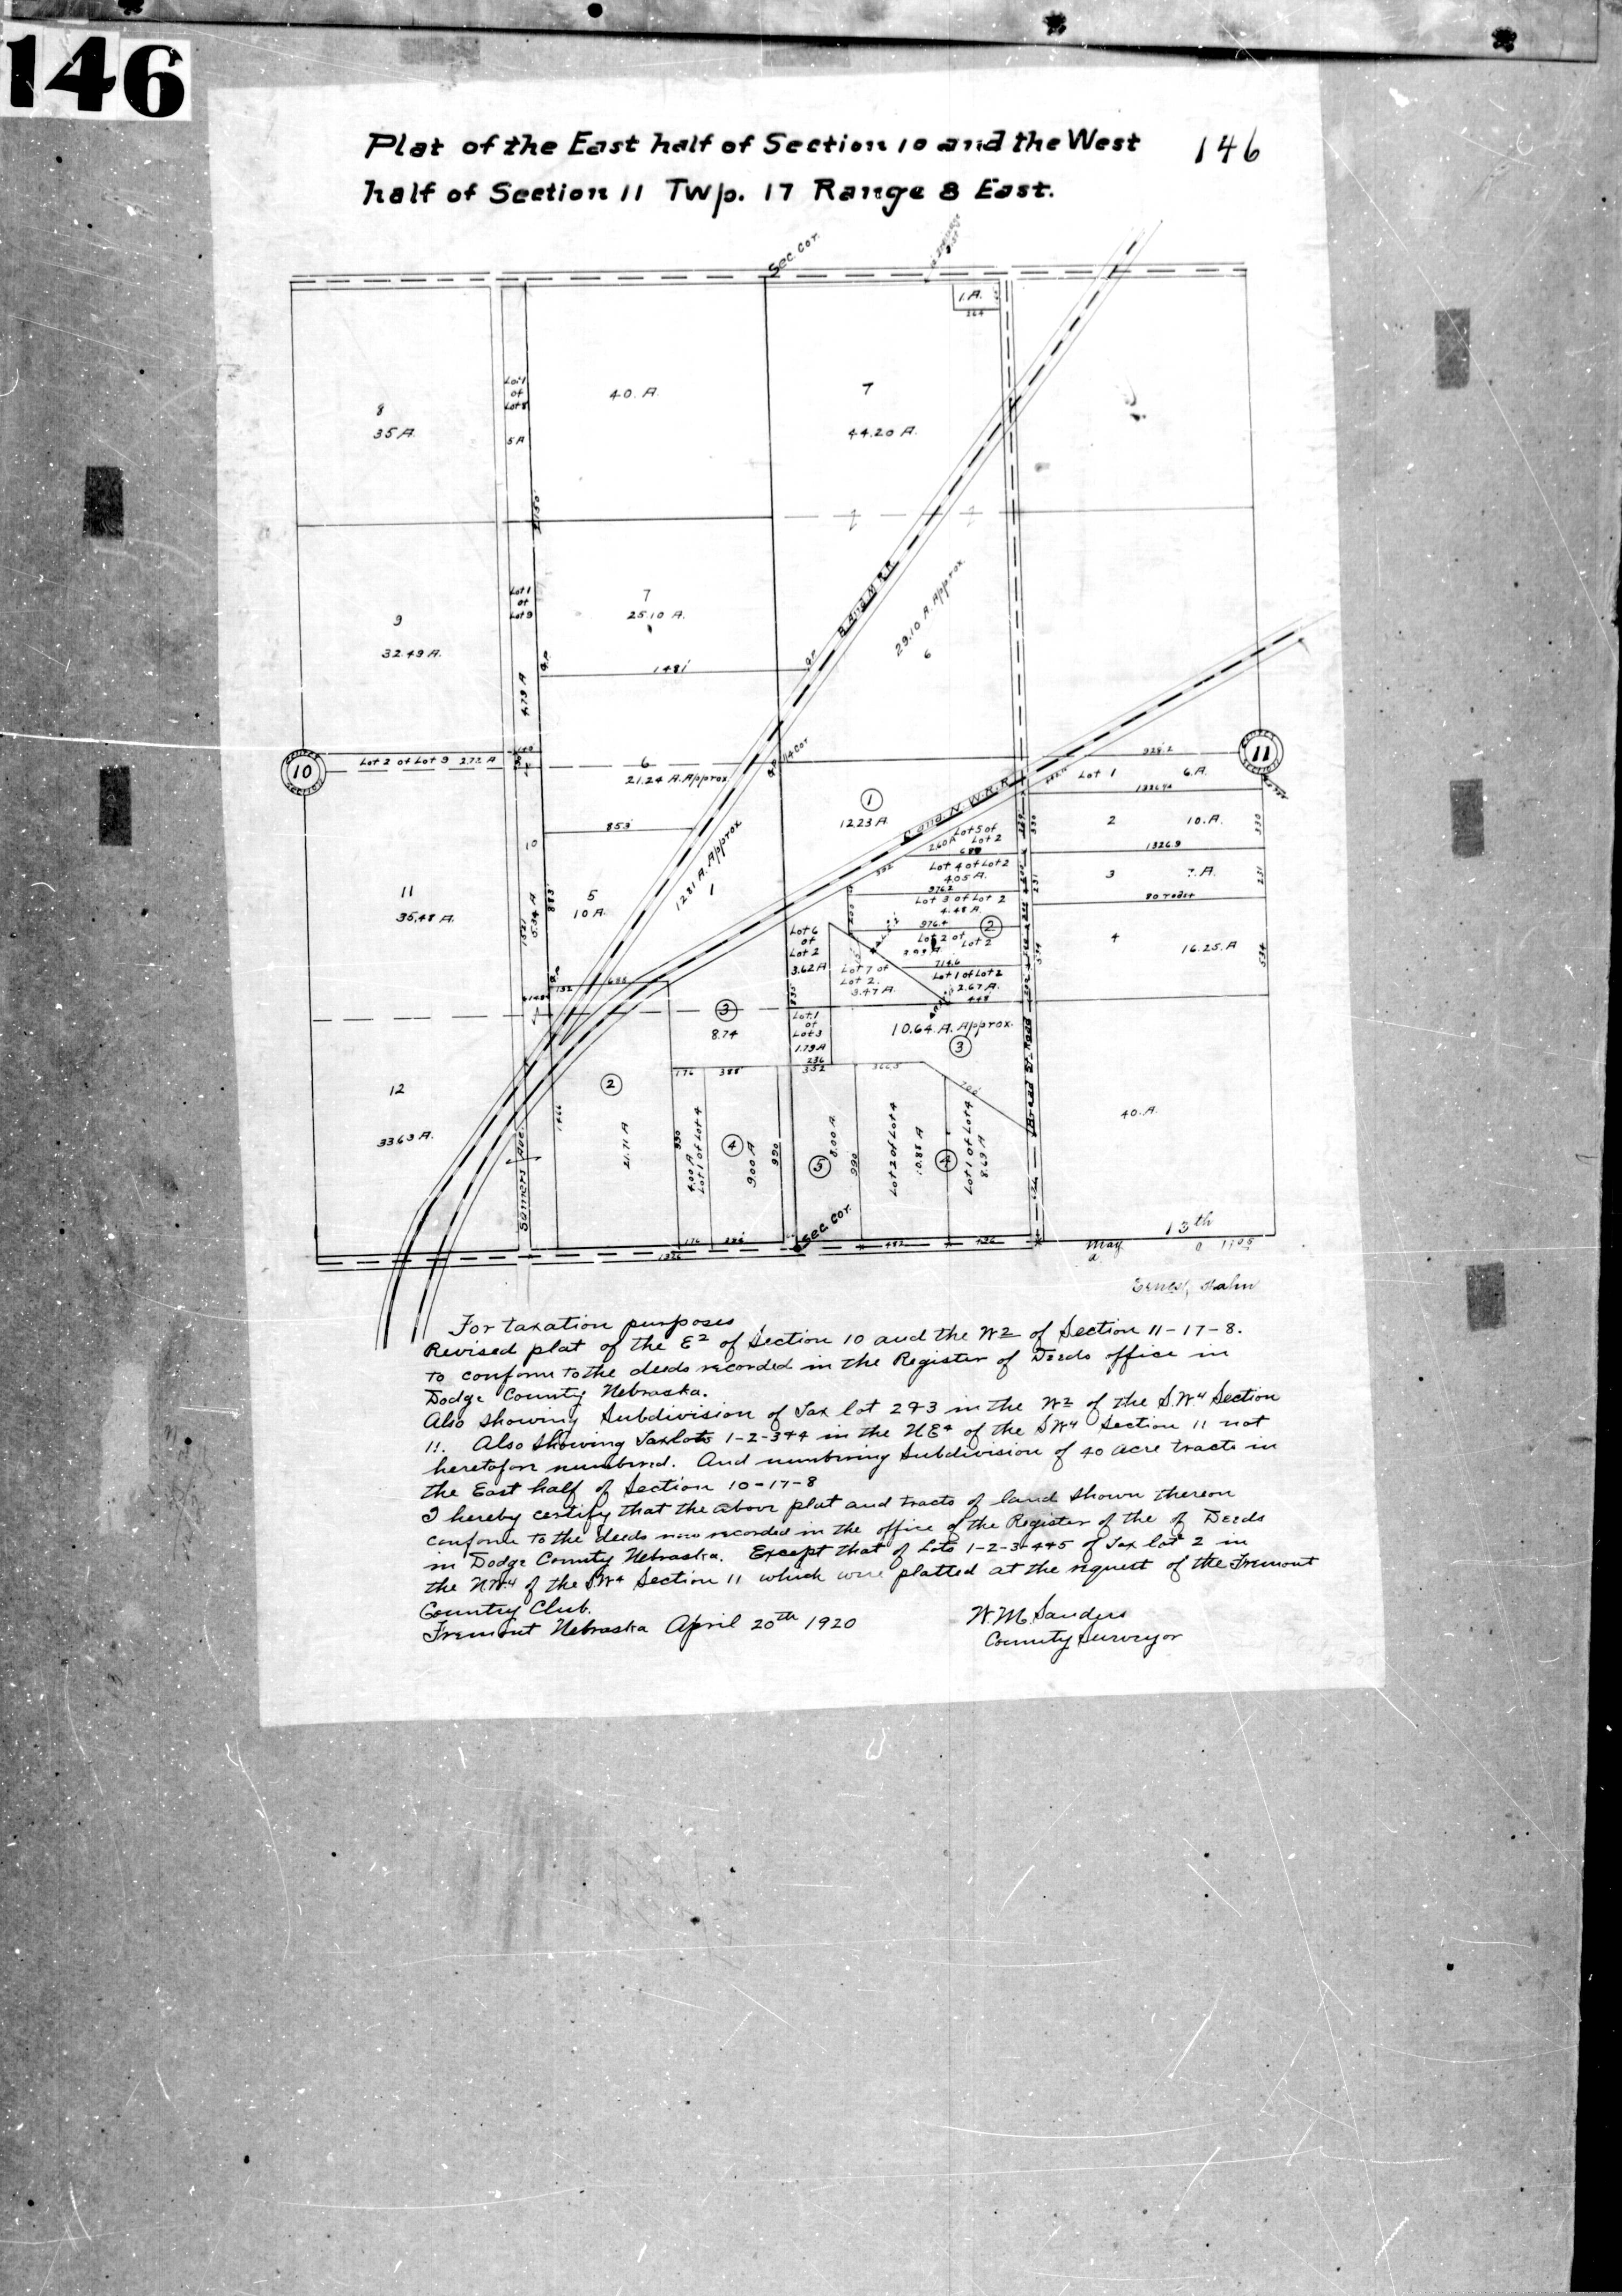 146
Plat of the East half of Section 10 and the West 146
half of Section 11 Twp. 17 Range 8 East.
Sec. Cor.
1.A.
264
8
35 A.
Lot 1
of
Lot 8
5 A
40. A.
7
44.20 A.
9
32.49 A.
Lot 1
of
Lot 9
4.79 A
7
25.10 A.
1481
B. And M R.R.
29.10 A. Approx.
6
10
Lot 2 of Lot 9 2.72 A
6
21.24 A. Approx.
1/4 Cor
929.2
11
Lot 1 6.A.
1
12.23 A.
C. and N. W. R. R.
2 10.A.
330
1326.9
853
Lot 5 of
Lot 2
2.60 A
Lot 4 of Lot 2
4.05 A.
976.2
3 7.A.
231
80 rods
Lot 3 of Lot 2
4.48 A.
976.4
2
11
35.48 A.
10
5.34 A
1521
883
5
10 A.
12.81 A. Approx
1
Lot 6
of
Lot 2
3.62 A
835
Lot 7 of
Lot 2.
3.47 A.
Lot 2 of
Lot 2
714.6
Lot 1 of Lot 2
2.67 A.
448
4
16.25. A
534
132
686
3
8.74
Lot 1
of
Lot 3
1.79 A
236
10.64. A. Approx.
3
Broad St. Road
12
33.63 A.
2
21.71 A
1466
176 388 352 366.5 700
990
4.00 A
Lot 1 of Lot 4
4
9.00 A
990
5
8.00 A
990
Lot 2 of Lot 4
10.88 A
4
Lot 1 of Lot 4
8.69 A
40. A.
Somers Ave.
Sec. Cor.
176
482 436
1326
13th
May
Ernest Hahn
For taxation purposes
Revised plat of the E2 of Section 10 and the W2 of Section 11-17-8.
to conform to the deeds recorded in the Register of Deeds office in
Dodge County Nebraska.
Also showing Subdivision of Tax lot 2&3 in the W2 of the S.W.4 Section
11. Also showing Tax lots 1-2-3&4 in the NE4 of the SW4 Section 11 not
heretofore numbered. And numbering Subdivision of 40 acre tracts in
the East half of Section 10-17-8
I hereby certify that the above plat and tracts of land shown thereon
conform to the deeds now recorded in the office of the Register of the of Deeds
in Dodge County Nebraska. Except that of Lots 1-2-3-4&5 of Tax lot 2 in
the N.W.4 of the SW4 Section 11 which were platted at the request of the Fremont
Country Club.
Fremont Nebraska April 20th 1920
W.M. Sanders
County Surveyor